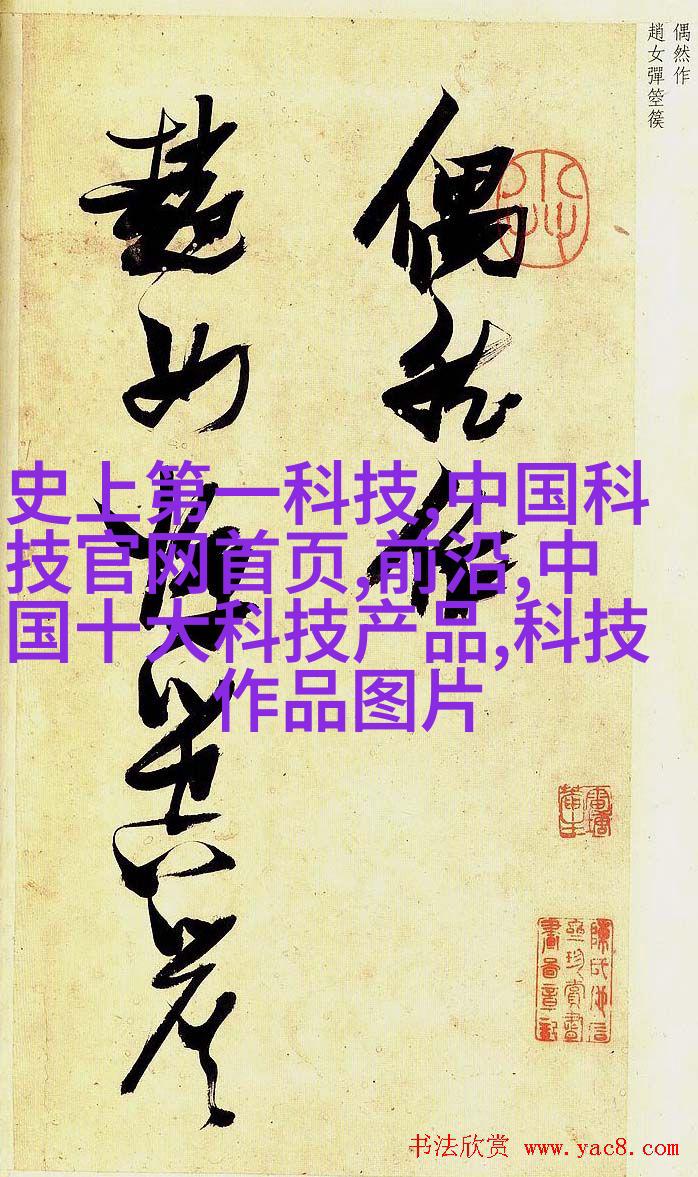 偶然作
趙女彈箜篌
偶然作
趙女彈箜篌
史上第一科技,中国科
技官网首页,前沿,中
国十大科技产品,科技
作品图片
书法欣赏 www.yac8.com